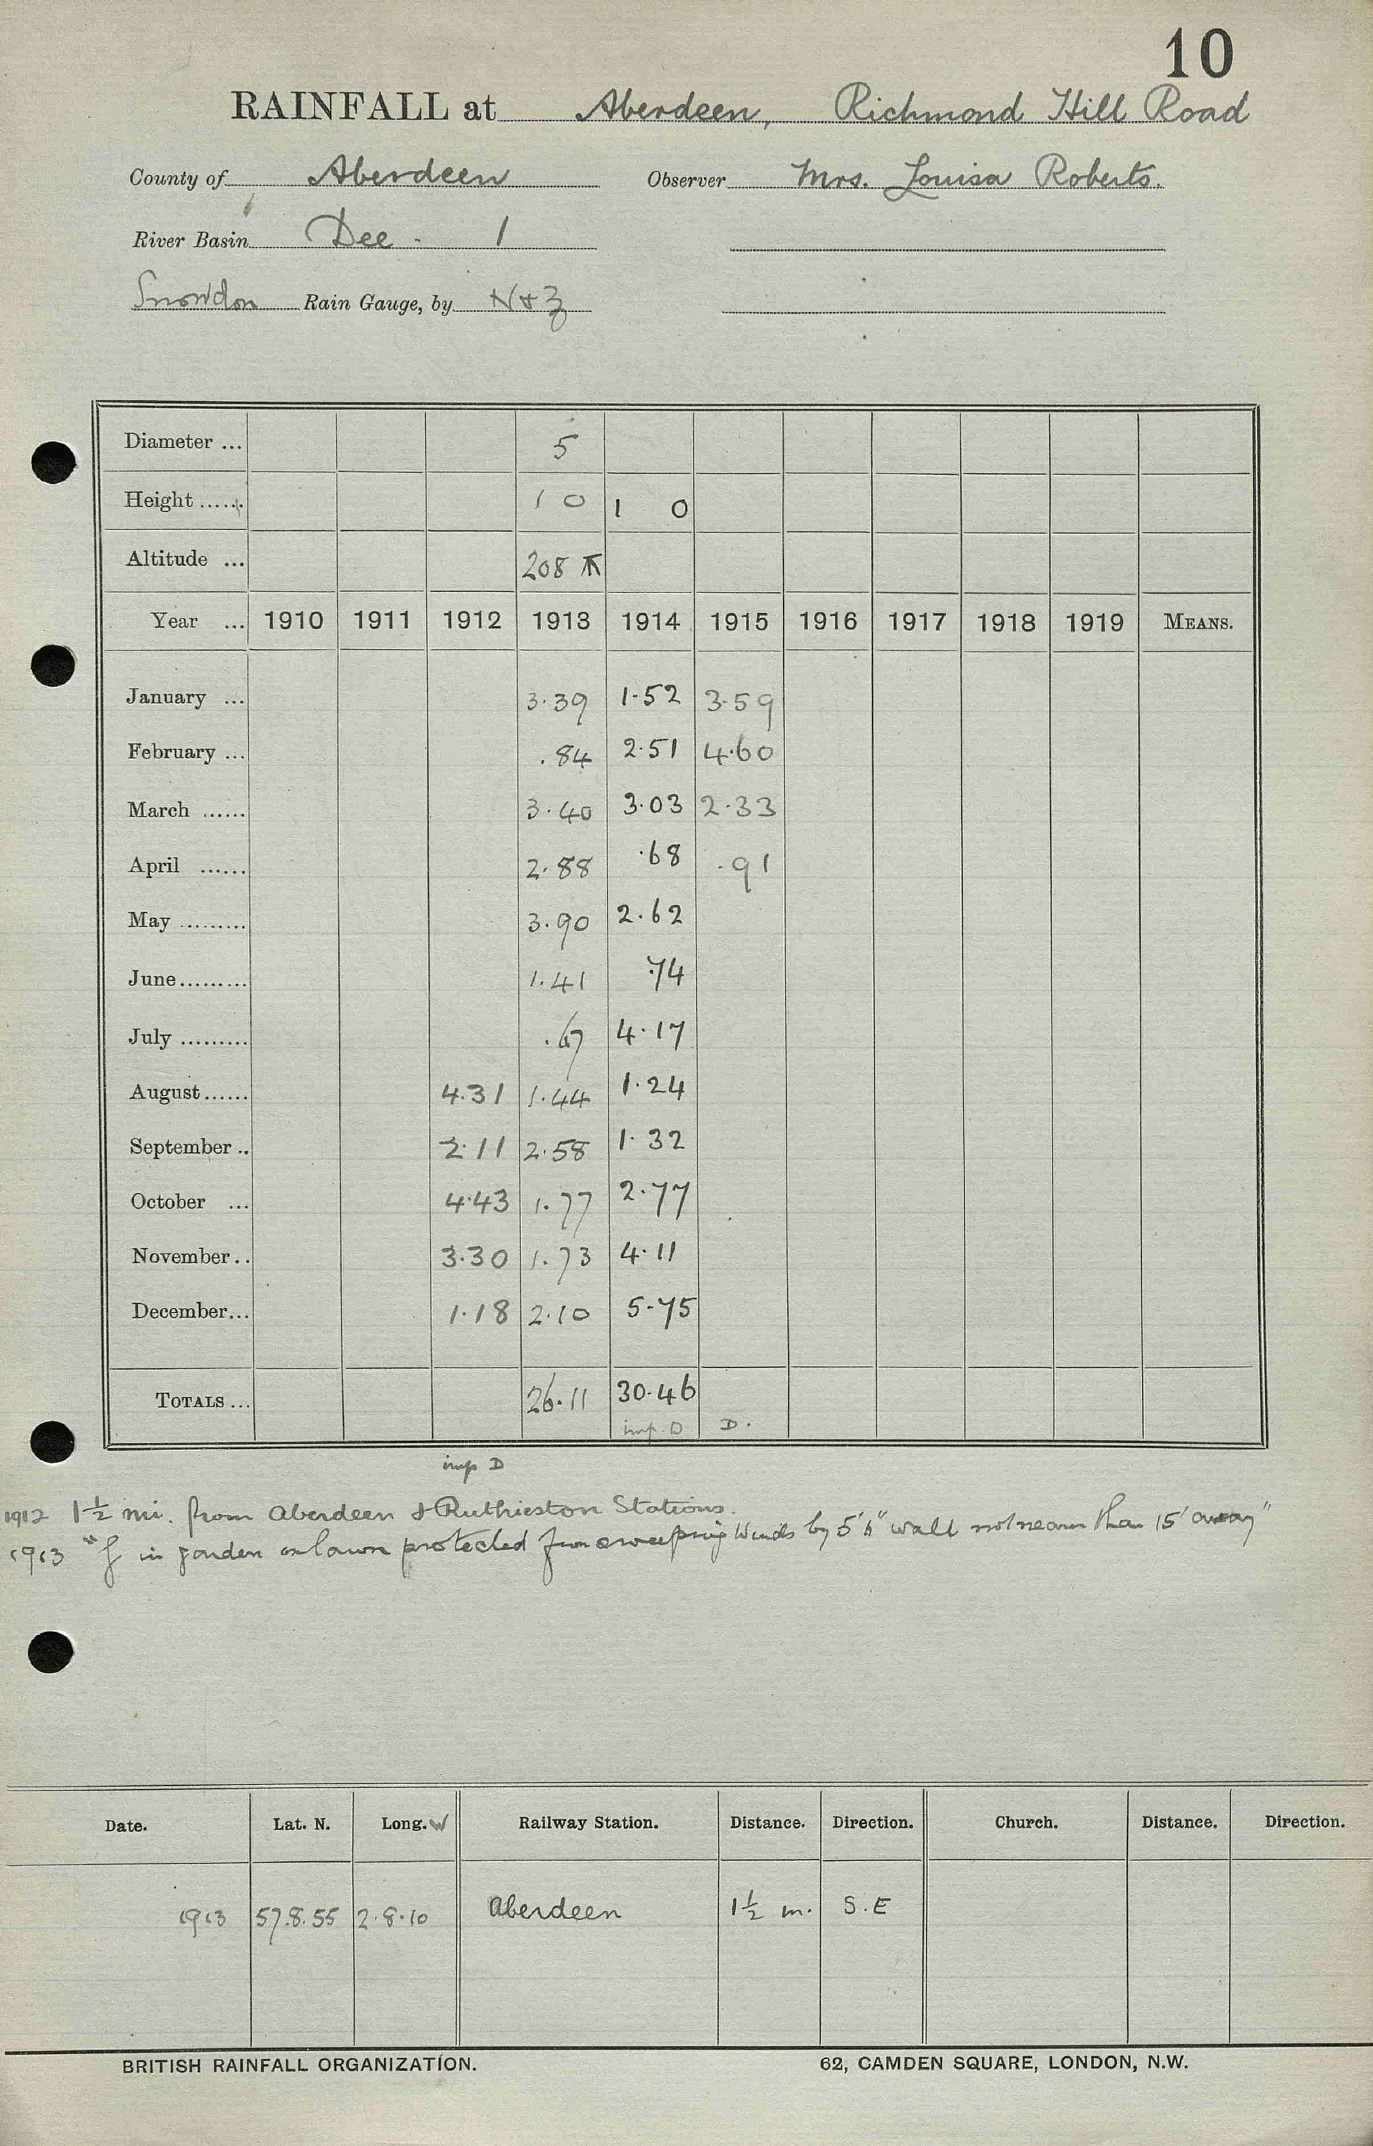 10
RAINFALL at Aberdeen, Richmond Hill Road
County of Aberdeen Observer Mrs. Louisa Roberts.
River Basin Dee - 1
Snowdon Rain Gauge, by N & Z
Diameter ... 5
Height ...... 1 0 1 0
Altitude ... 208
Year ... 1910 1911 1912 1913 1914 1915 1916 1917 1918 1919 MEANS.
January ... 3.39 1.52 3.59
February ... .84 2.51 4.60
March ...... 3.40 3.03 2.33
April ...... 2.88 .68 .91
May ......... 3.90 2.62
June ......... 1.41 .74
July ......... .67 4.17
August ...... 4.31 1.44 1.24
September .. 2.11 2.58 1.32
October ... 4.43 1.77 2.77
November .. 3.30 1.73 4.11
December ... 1.18 2.10 5.75
TOTALS ... 26.11 30.46
imp. D D.
imp D
1912 1½ mi. from Aberdeen & Ruthrieston Stations.
1913 "G in garden on lawn protected from sweeping winds by 5'6" wall not nearer than 15' away"
Date. Lat. N. Long. W Railway Station. Distance. Direction. Church. Distance. Direction.
1913 57.8.55 2.8.10 Aberdeen 1½ m. S.E
BRITISH RAINFALL ORGANIZATION. 62, CAMDEN SQUARE, LONDON, N.W.